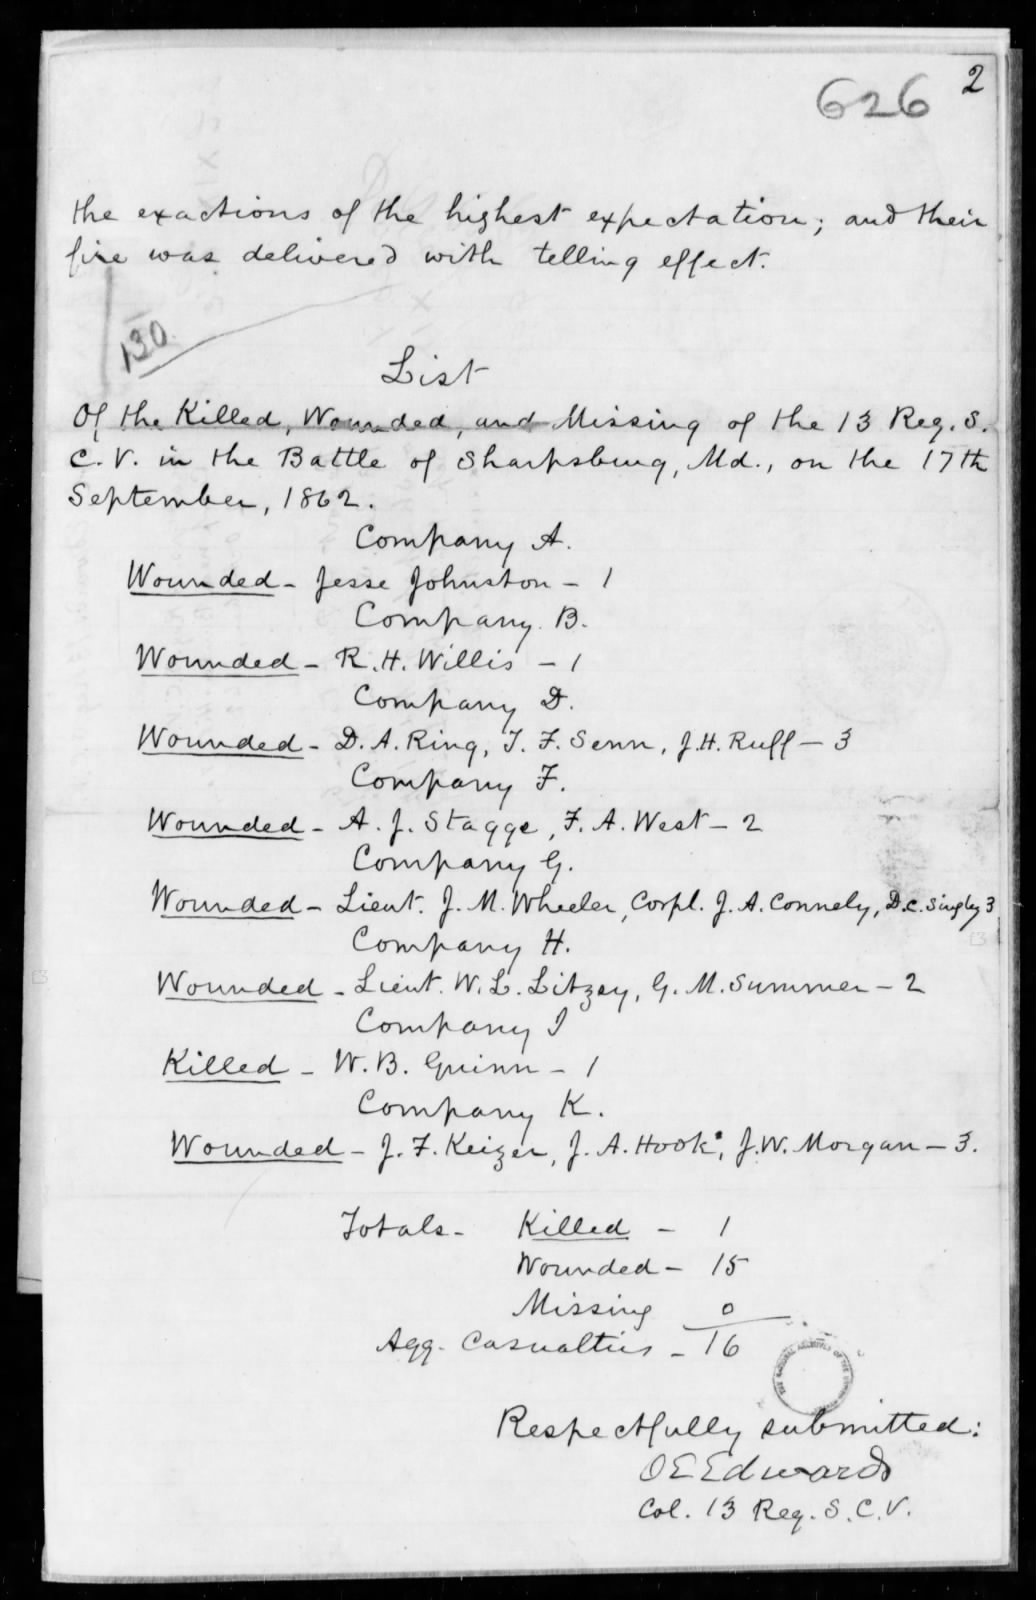 2
626
the exactions of the highest expectation; and their
fire was delivered with telling effect.
130
List
Of the Killed, Wounded, and Missing of the 13 Reg. S.
C. V. in the Battle of Sharpsburg, Md., on the 17th
September, 1862.
Company A.
Wounded - Jesse Johnston - 1
Company B.
Wounded - R. H. Willis - 1
Company D.
Wounded - D. A. Ring, T. F. Senn, J. H. Ruff - 3
Company F.
Wounded - A. J. Staggs, F. A. West - 2
Company G.
Wounded - Lieut. J. M. Wheeler, Corpl. J. A. Connely, D. C. Singley 3
Company H.
Wounded - Lieut. W. L. Litzey, G. M. Summer - 2
Company I
Killed - W. B. Guinn - 1
Company K.
Wounded - J. F. Keizer, J. A. Hook, J. W. Morgan - 3.
Totals - Killed - 1
Wounded - 15
Missing 0
Agg. Casualties - 16
Respectfully submitted:
O E Edwards
Col. 13 Reg. S. C. V.